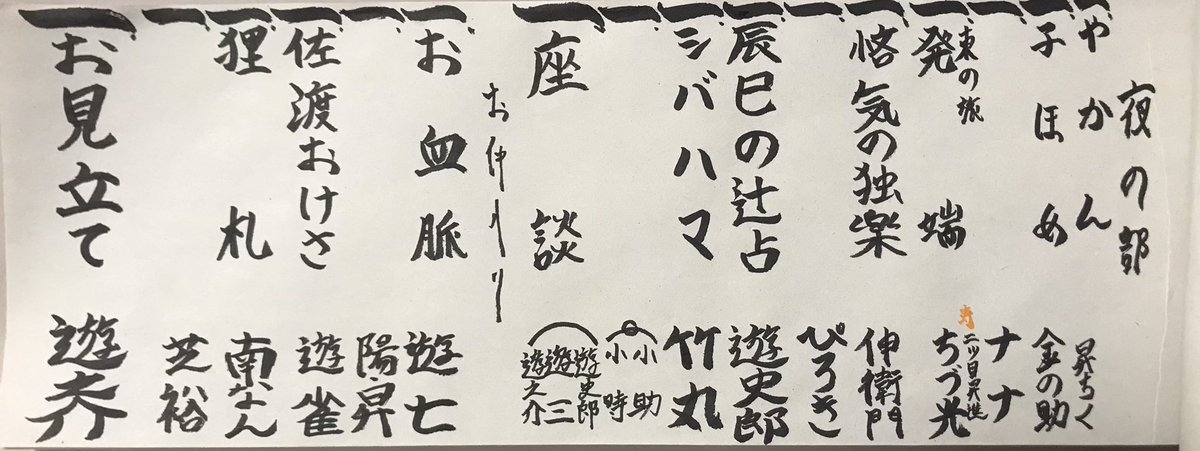 夜の部
一、やかん 昇ちく
一、子ほめ 金の助
一、 ナナ
一、東の旅 発端 寿 二ツ目昇進 ちづ光
一、悋気の独楽 伸衛門
一、 ぴろき
一、辰巳の辻占 遊史郎
一、シバハマ 竹丸
一、 小助 小時
一、座談 遊史郎 遊三 遊之介
お仲入り
一、お血脈 遊七
一、 陽・昇
一、佐渡おけさ 遊雀
一、狸札 南なん
一、 芝裕
一、お見立て 遊喬